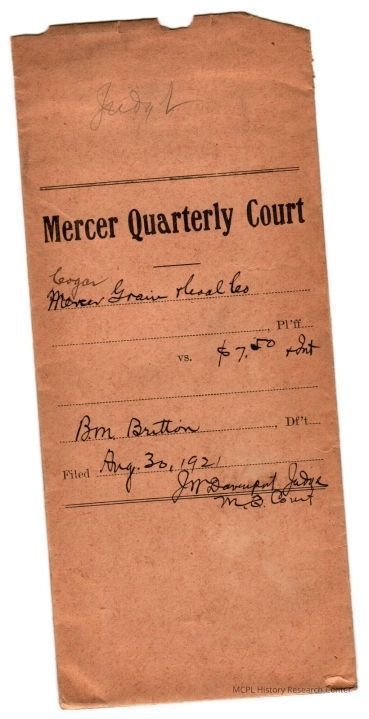 Judgt
Mercer Quarterly Court
Cogar
Mercer Grain & Coal Co
Pl'ff
vs. $7.50 + Int
B.M. Britton, Df't
Filed Aug. 30, 1921
J W Davenport Judge
M. Q. Court
MCPL History Research Center